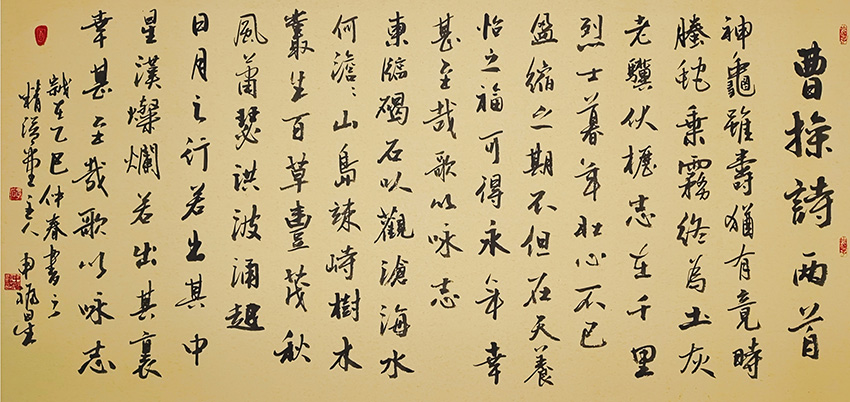 曹操詩两首
神龜雖壽猶有竟時
螣虵乘霧終為土灰
老驥伏櫪志在千里
烈士暮年壯心不已
盈縮之期不但在天養
怡之福可得永年幸
甚至哉歌以咏志
東臨碣石以觀滄海水
何澹〻山島竦峙樹木
叢生百草豐茂秋
風蕭瑟洪波涌起
日月之行若出其中
星漢燦爛若出其裏
幸甚至哉歌以咏志
歲在乙巳仲春書之
堂主人